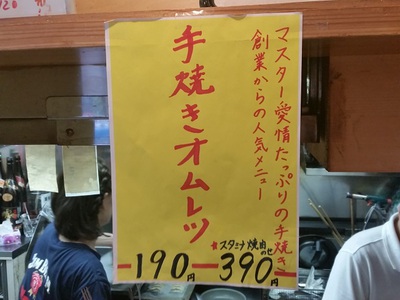 マスター愛情たっぷりの手焼き
創業からの人気メニュー
手焼きオムレツ
190円
★スタミナ焼肉
のせ
390円